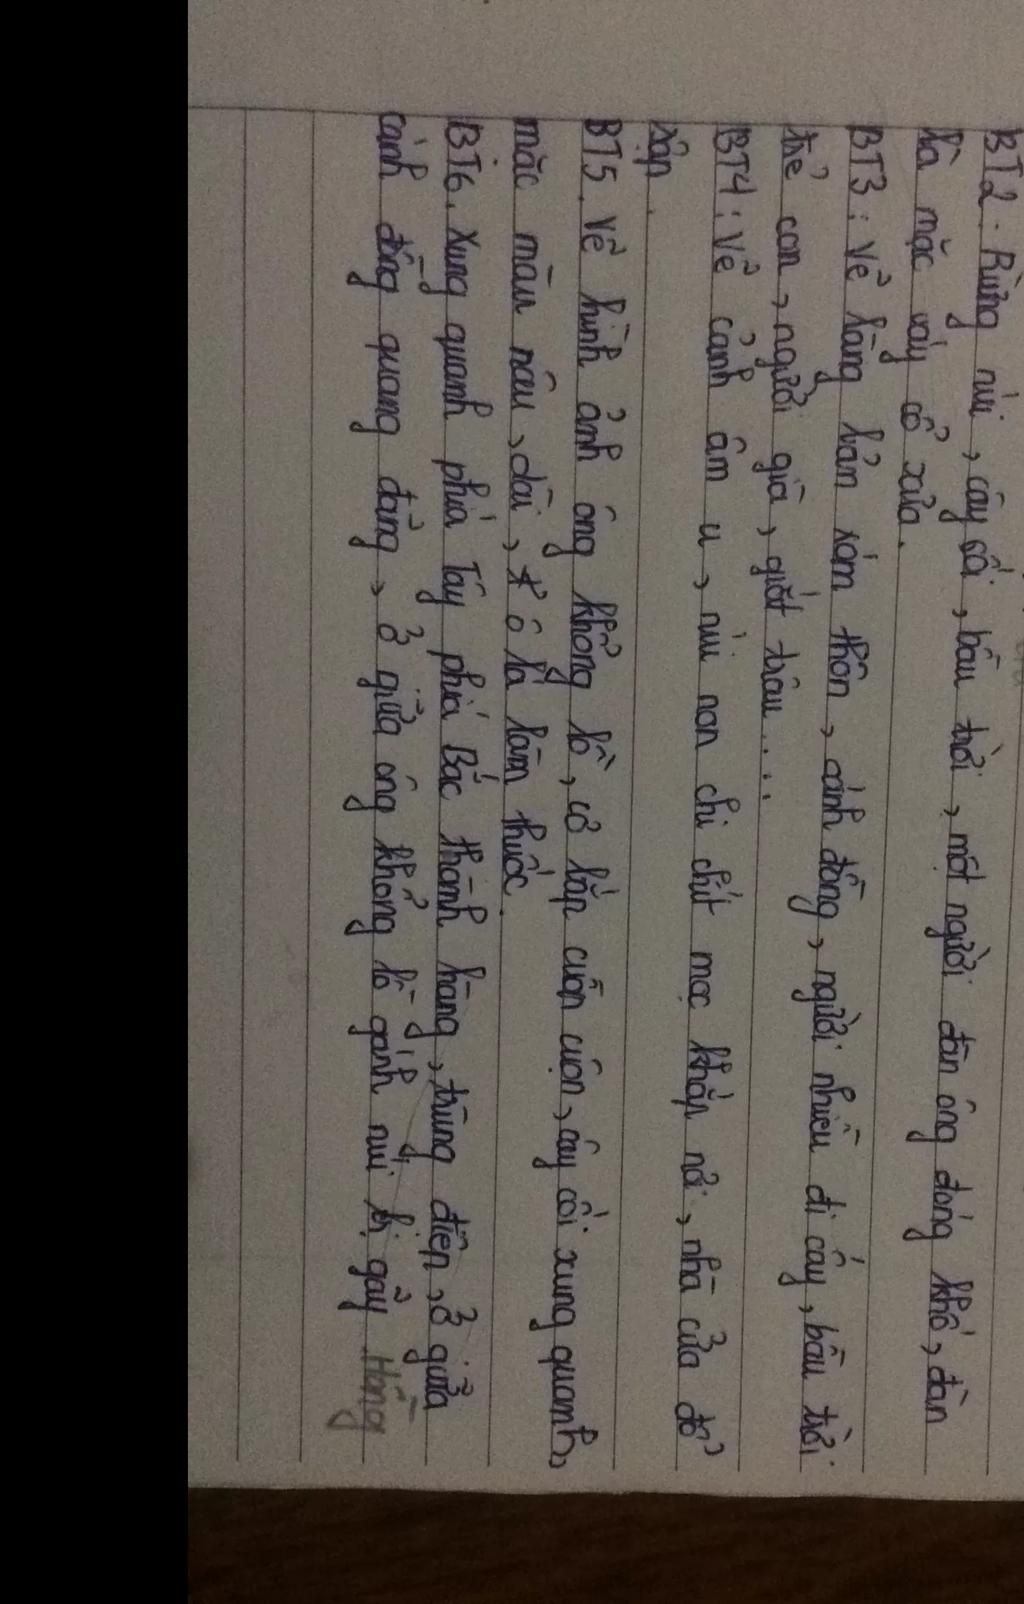 BT2. Rừng núi, cây cối, bầu trời, một người đàn ông đóng khố, đàn
bà mặc váy cổ xưa.
BT3: Vẽ làng bản xóm thôn, cánh đồng, người nhiều đi cấy, bầu trời
trẻ con, người già, giắt trâu....
BT4: Vẽ cảnh âm u, núi non chi chít mọc khắp nơi, nhà cửa đổ
sập.
BT5. Vẽ hình ảnh ông khổng lồ, cơ bắp cuồn cuộn, cây cối xung quanh,
mặc màu nâu, dài, ô lá làm thước.
BT6. Xung quanh phía Tây phía Bắc thành hàng, trùng điệp, ở giữa
cánh đồng quang đãng, ở giữa ông khổng lồ gánh núi bị gãy Hồng